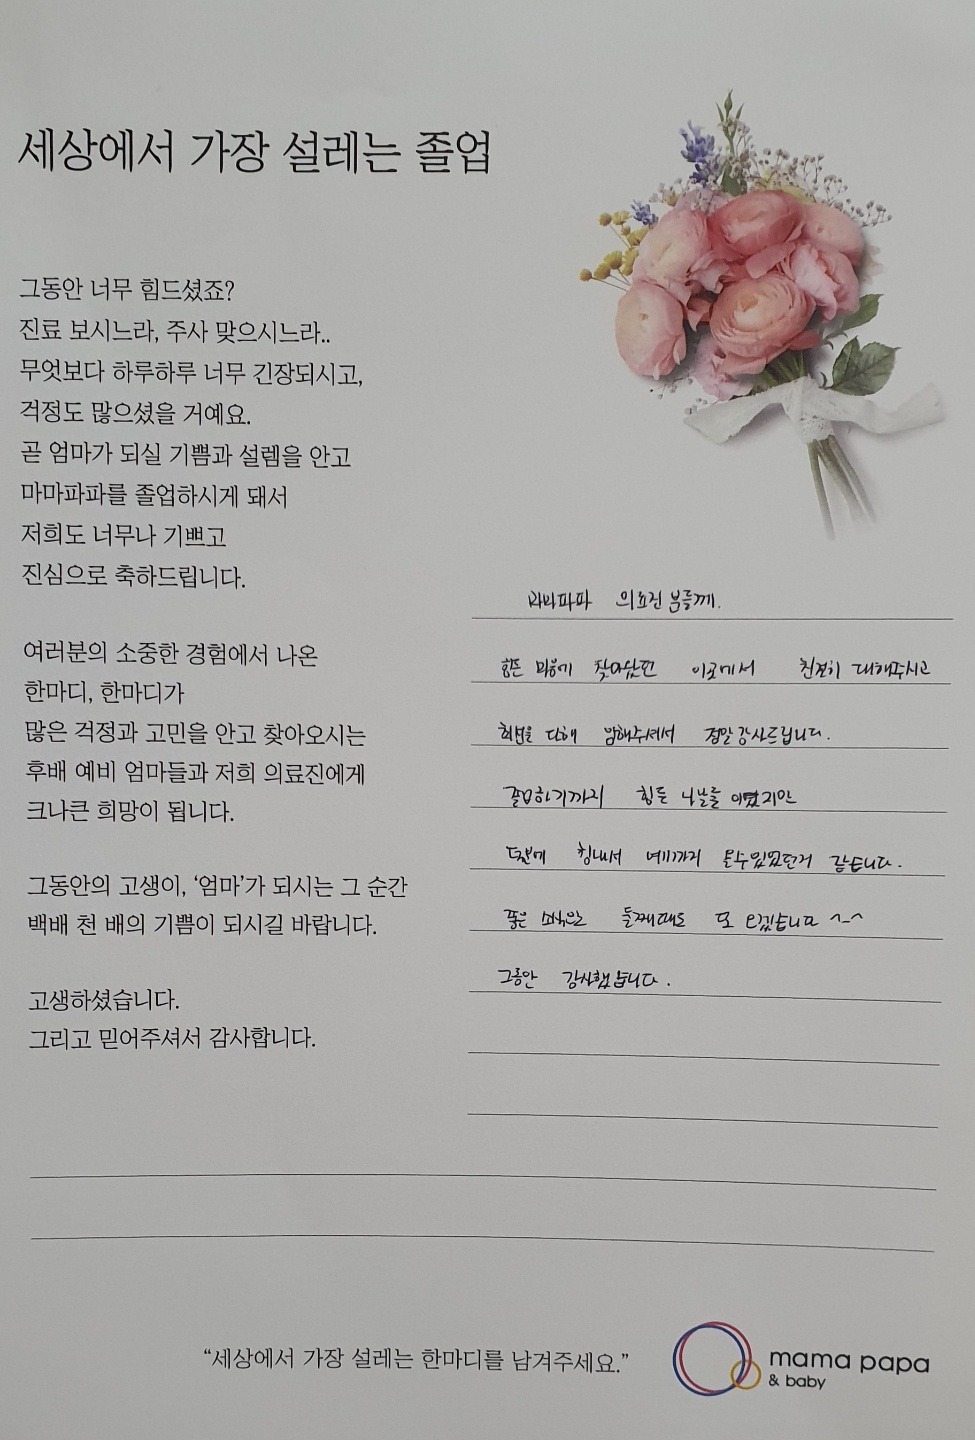 세상에서 가장 설레는 졸업
그동안 너무 힘드셨죠?
진료 보시느라, 주사 맞으시느라..
무엇보다 하루하루 너무 긴장되시고,
걱정도 많으셨을 거예요.
곧 엄마가 되실 기쁨과 설렘을 안고
마마파파를 졸업하시게 돼서
저희도 너무나 기쁘고
진심으로 축하드립니다.
여러분의 소중한 경험에서 나온
한마디, 한마디가
많은 걱정과 고민을 안고 찾아오시는
후배 예비 엄마들과 저희 의료진에게
크나큰 희망이 됩니다.
그동안의 고생이, ‘엄마’가 되시는 그 순간
백배 천 배의 기쁨이 되시길 바랍니다.
고생하셨습니다.
그리고 믿어주셔서 감사합니다.
마마파파 의료진 분들께.
힘든 마음에 찾아왔던 이곳에서 친절히 대해주시고
최선을 다해 정말 감사드립니다.
졸업하기까지 힘든 나날들 이였지만
덕분에 힘내서 여기까지 올수있었던거 같습니다.
좋은 소식으로 둘째때도 또 오겠습니다 ^-^
그동안 감사했습니다.
“세상에서 가장 설레는 한마디를 남겨주세요.”
mama papa
& baby